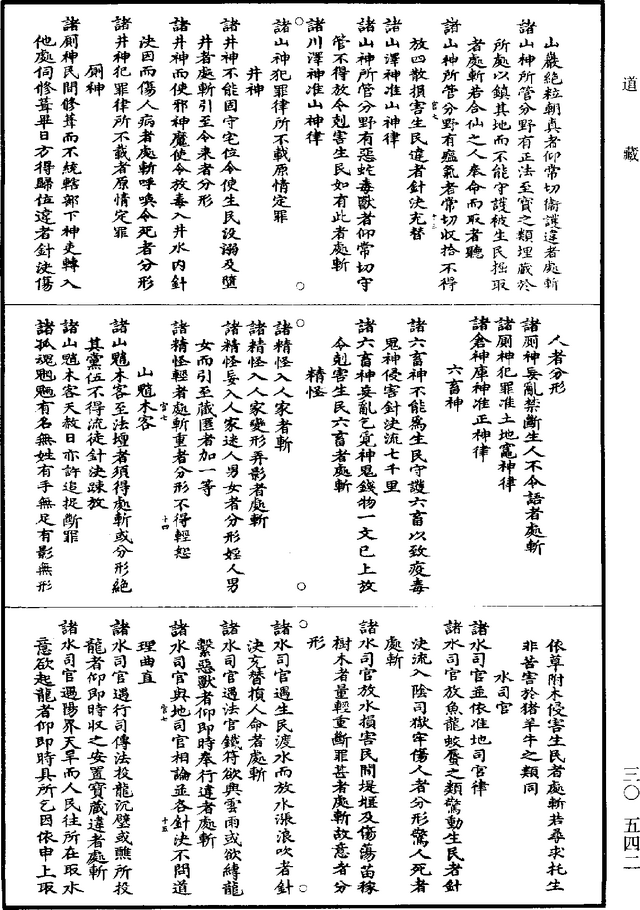 道藏
山嚴絕粒朝真者仰常切衛護違者處斬
諸山神所管分野有正法至寶之類埋藏於
所處以鎮其地而不能守護被生民掘取
者處斬若合仙之人奉命而取者聽
諸山神所管分野有瘟氣者常切收拾不得
放四散損害生民違者針決充替
諸山澤神准山神律
諸山神所管分野有惡蛇毒獸者仰常切守
管不得放令剋害生民如有此者處斬
諸川澤神准山神律
諸山神犯罪律所不載原情定罪
井神
諸井神不能固守宅位令使生民設溺及墮
井者處斬引至令来者分形
諸井神而使邪神魔使令放毒入井水内針
決因而傷人病者處斬呼喚令死者分形
諸井神犯罪律所不載者原情定罪
廁神
諸廁神民間修葺而不統轄部下神吏轉入
他處伺修葺畢日方得歸位違者針決傷
人者分形
諸廁神妄亂禁斷生人不令語者處斬
諸廁神犯罪准土地竈神律
諸倉神庫神准正神律
六畜神
諸六畜神不能爲生民守護六畜以致疫毒
鬼神侵害針決流七千里
諸六畜神妄亂乞覔神鬼錢物一文已上放
令剋害生民六畜者處斬
精怪
諸精怪入人家者斬
諸精怪入人家變形弄影者處斬
諸精怪妄入人家迷人男女者分形婬人男
女而引至藏匿者加一等
諸精怪輕者處斬重者分形不得輕恕
山魈木客
官七
十四
諸山魈木客至法壇者須得處斬或分形絕
其黨伍不得流徒針決踈放
諸山魈木客天赦日亦許追捉斷罪
諸孤魂魍魎有名無姓有手無足有影無形
依草附木侵害生民者處斬若尋求托生
非苦害於猪羊牛之類同
水司官
諸水司官並依准地司官律
諸水司官放魚龍蛟蜃之類驚動生民者針
決流入陰司獄牢傷人者分形驚人死者
處斬
諸水司官放水損害民間堤堰及傷蕩苗稼
樹木者量輕重斷罪甚者處斬故意者分
形
諸水司官遇生民渡水而放水漲浪吹者針
決充替損人命者處斬
諸水司官遇法官鐵符欲與雲雨或欲縛龍
繫惡獸者仰即時奉行違者處斬
諸水司官與地司官相論並各針決不問道
理曲直
官七
十五
諸水司官遇行司傳法投龍沉璧或醮所投
龍者仰即時收之安置寶藏違者處斬
諸水司官遇陽界天旱而人民往所在取水
意欲起龍者仰即時具所乞因依申上取
三〇 五四二